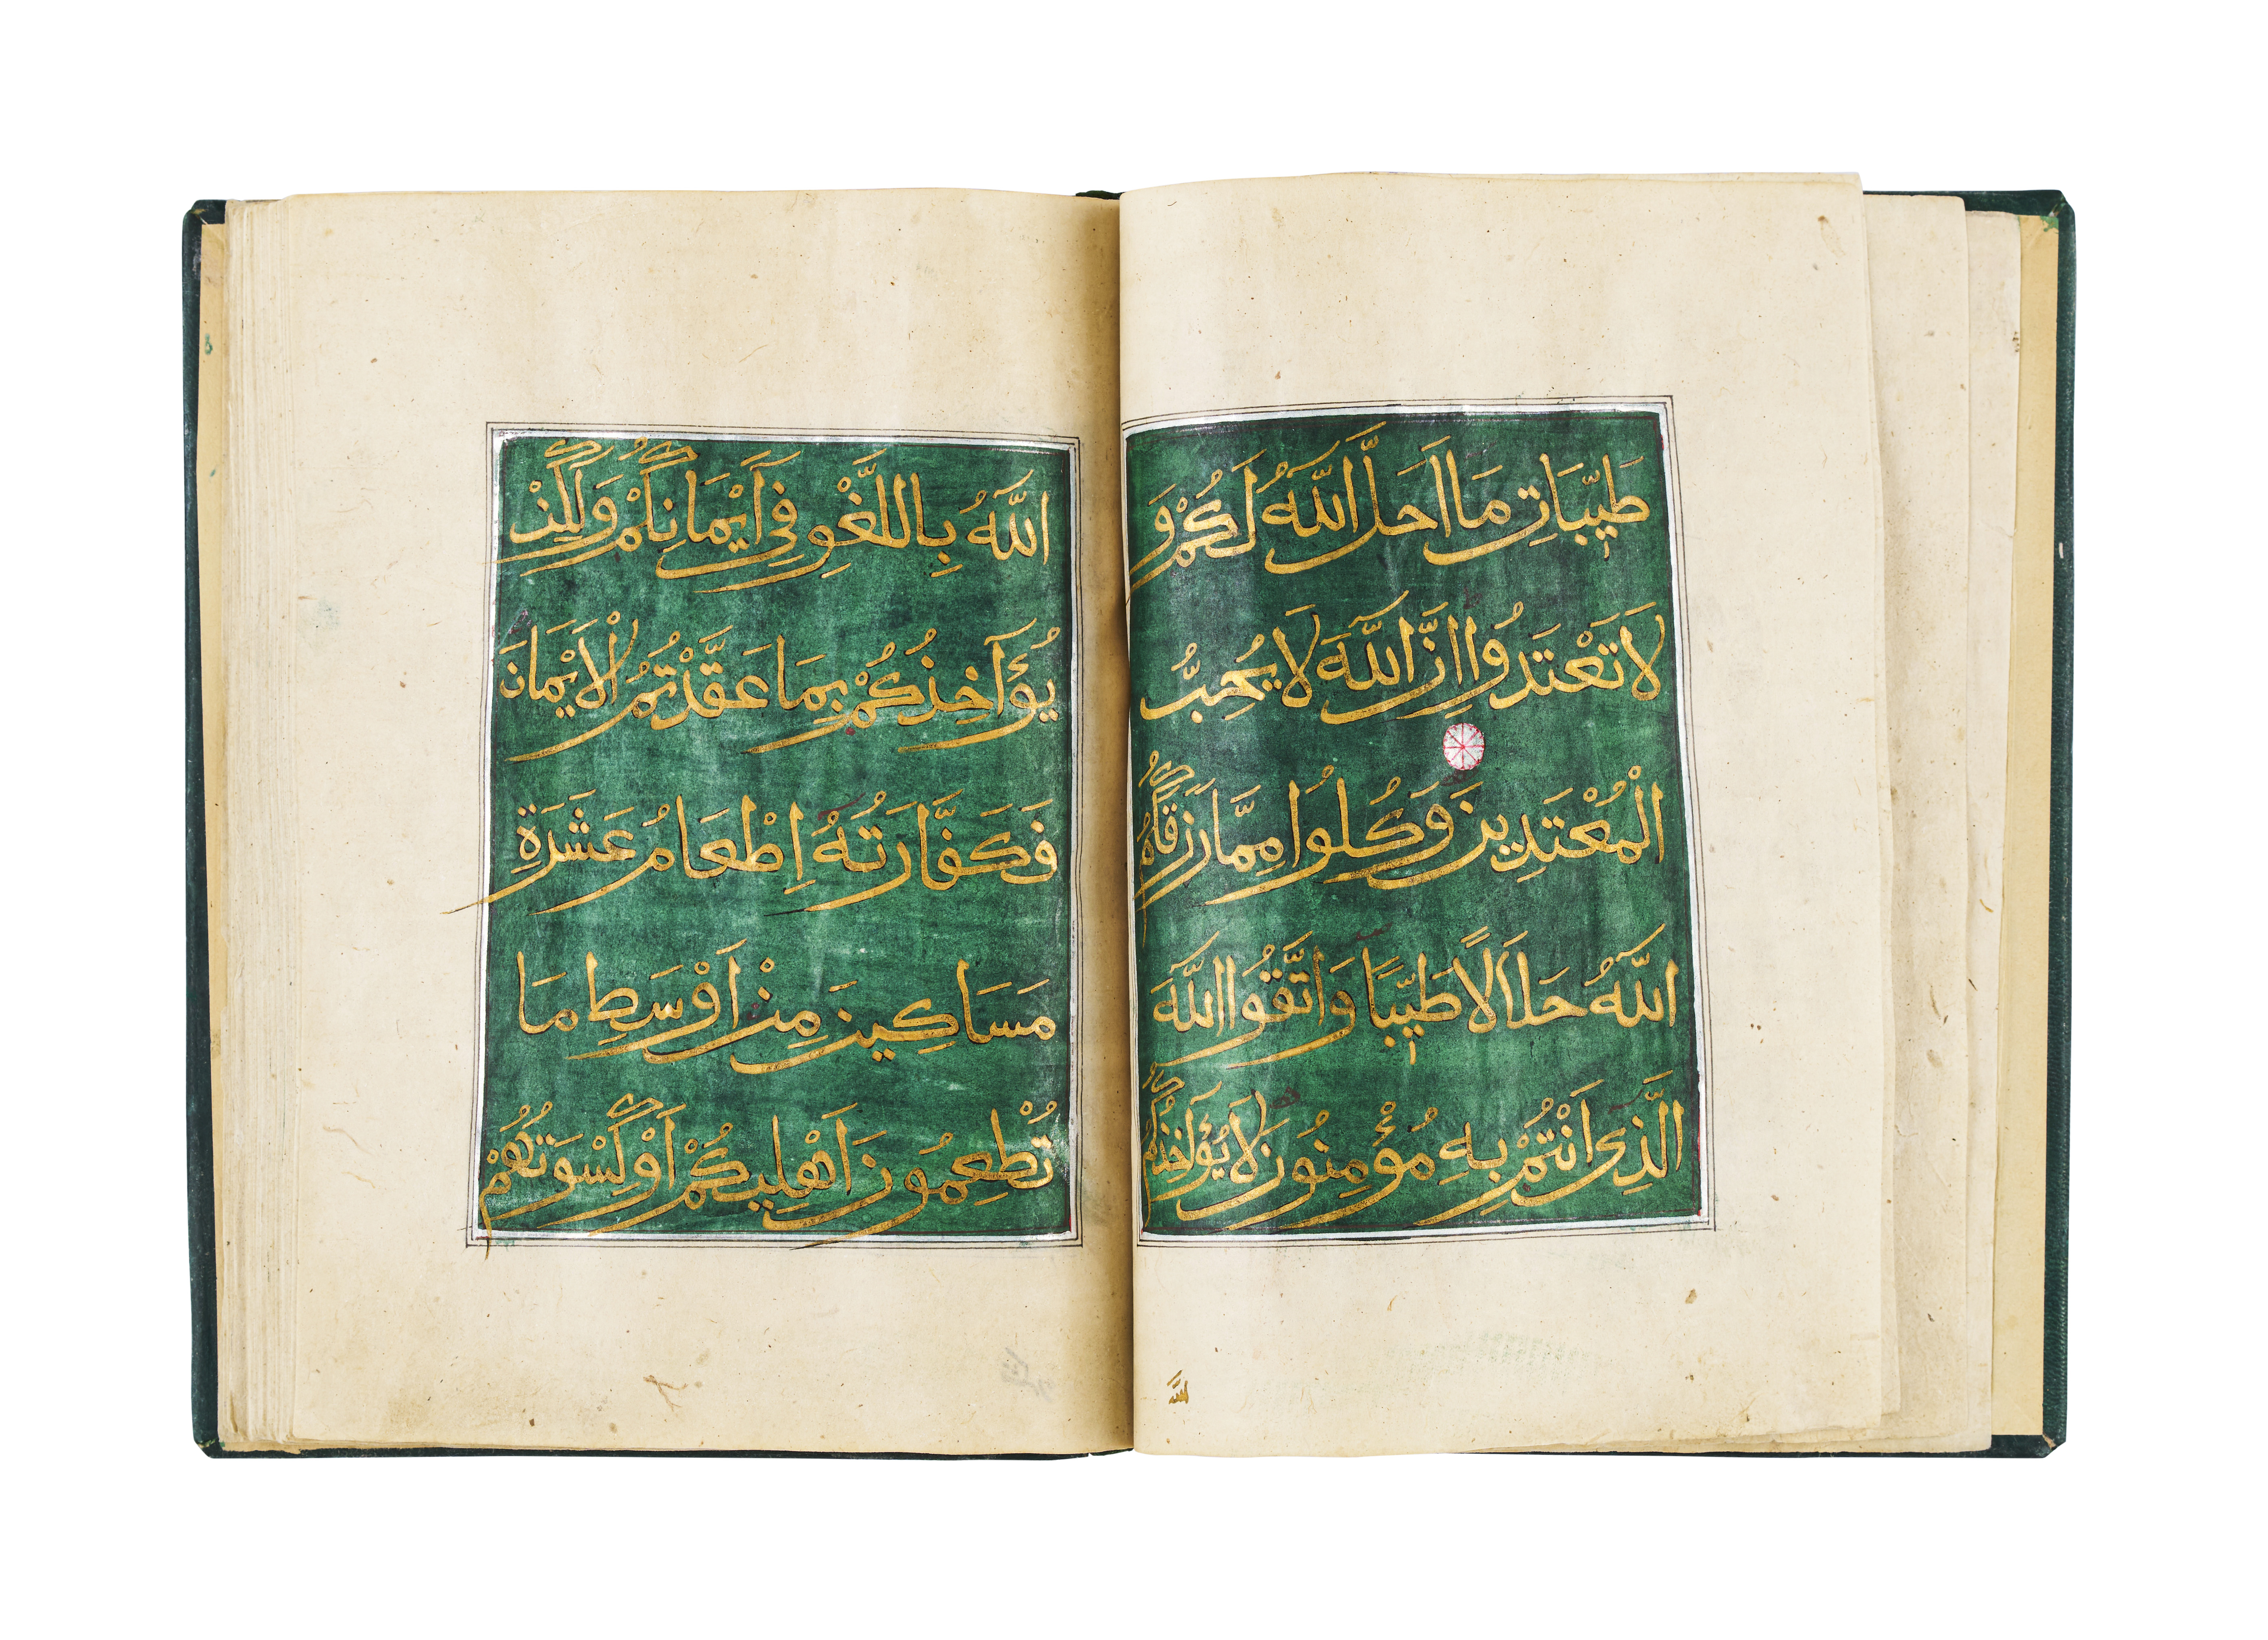 طَيِّبَاتِ مَا اَحَلَّ اللّٰهُ لَكُمْ وَ
لَا تَعْتَدُوا اِنَّ اللّٰهَ لَا يُحِبُّ
الْمُعْتَدِينَ وَكُلُوا مِمَّا رَزَقَكُمُ
اللّٰهُ حَلَالًا طَيِّبًا وَاتَّقُوا اللّٰهَ
الَّذِى اَنْتُمْ بِهِ مُؤْمِنُونَ لَا يُؤَاخِذُكُمُ
اللّٰهُ بِاللَّغْوِ فِى اَيْمَانِكُمْ وَلٰكِنْ
يُؤَاخِذُكُمْ بِمَا عَقَّدْتُمُ الْاَيْمَانَ
فَكَفَّارَتُهُ اِطْعَامُ عَشَرَةِ
مَسَاكِينَ مِنْ اَوْسَطِ مَا
تُطْعِمُونَ اَهْلِيكُمْ اَوْ كِسْوَتُهُمْ